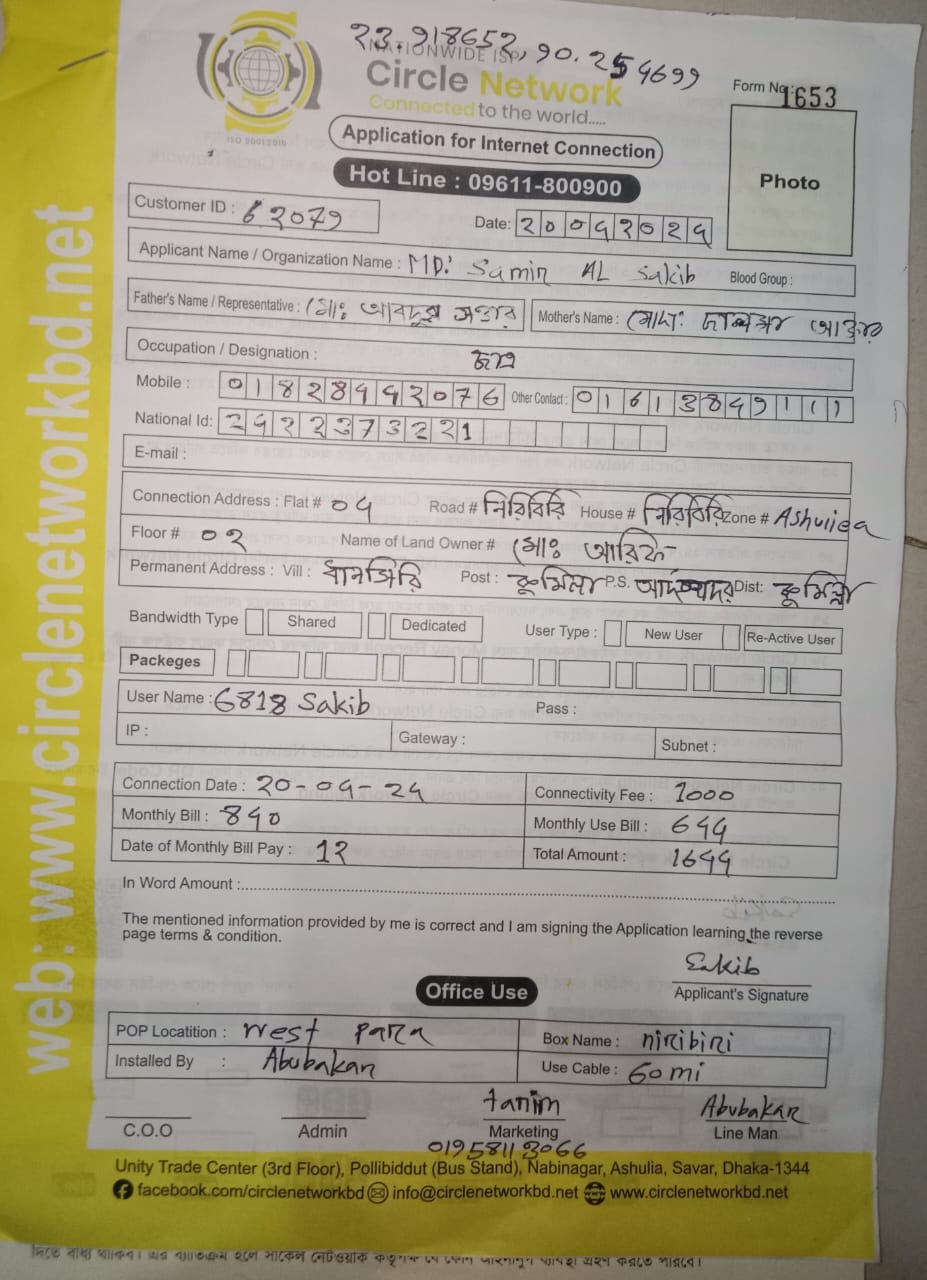 23.918652, 90.254699
NATIONWIDE ISP
Circle Network
Connected to the world.....
ISO 9001:2015
Form No : 1653
Application for Internet Connection
Hot Line : 09611-800900
Photo
Customer ID : 62079
Date: 20042024
Applicant Name / Organization Name : MD. Samin AL Sakib Blood Group :
Father's Name / Representative : মোঃ আবদুল সত্তার Mother's Name : মোসাঃ আক্তার
Occupation / Designation :
Mobile : 01828442076 Other Contact : 01613849111
National Id: 2422373221
E-mail :
Connection Address : Flat # 04 Road # নিরিবিরি House # নিরিবিরি Zone # Ashuliea
Floor # 02 Name of Land Owner # মোঃ আরিফ
Permanent Address : Vill : ধানসিরি Post : কুমিল্লা P.S. Dist: কুমিল্লা
Bandwidth Type Shared Dedicated User Type : New User Re-Active User
Packeges
User Name : 6818 Sakib Pass :
IP : Gateway : Subnet :
Connection Date : 20-04-24 Connectivity Fee : 1000
Monthly Bill : 840 Monthly Use Bill : 644
Date of Monthly Bill Pay : 12 Total Amount : 1644
In Word Amount :
The mentioned information provided by me is correct and I am signing the Application learning the reverse
page terms & condition.
Sakib
Applicant's Signature
Office Use
POP Locatition : West Para Box Name : niribiri
Installed By : Abubakar Use Cable : 60 mi
tanim Abubakar
C.O.O Admin Marketing Line Man
01958113066
Unity Trade Center (3rd Floor), Pollibiddut (Bus Stand), Nabinagar, Ashulia, Savar, Dhaka-1344
facebook.com/circlenetworkbd info@circlenetworkbd.net www.circlenetworkbd.net
web: www.circlenetworkbd.net